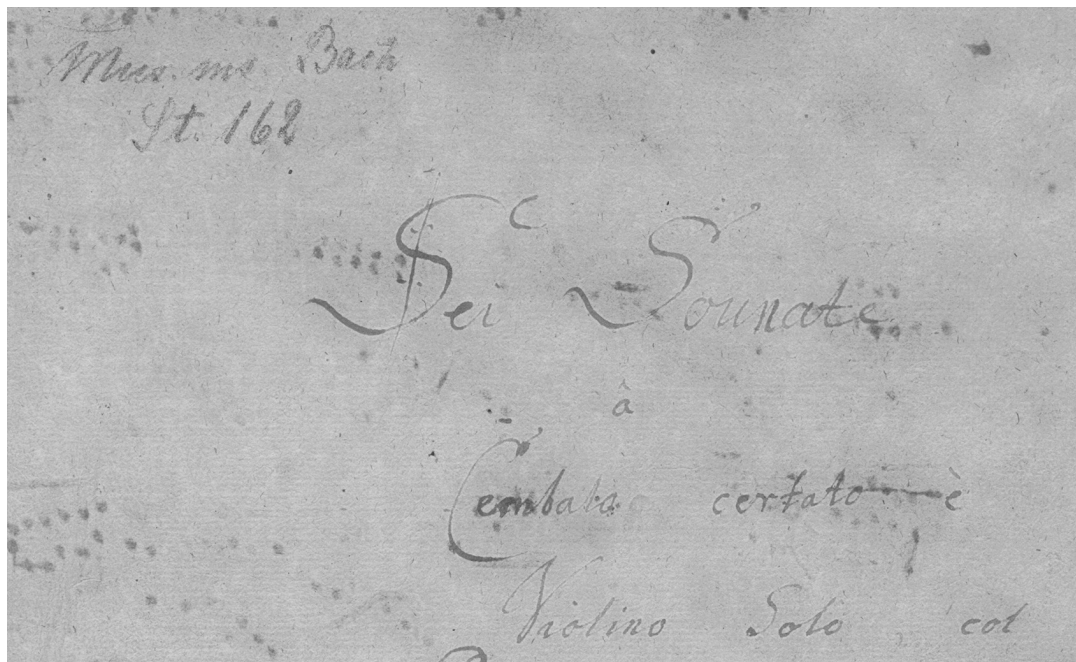 Mus. ms. Bach
St. 162
Sei Sounate
â
Cembalo certato è
Violino Solo col